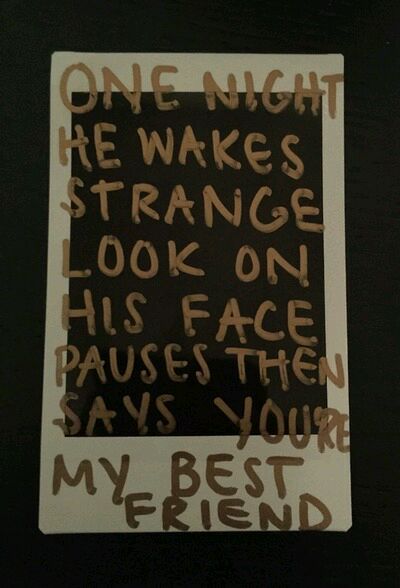 ONE NIGHT
HE WAKES
STRANGE
LOOK ON
HIS FACE
PAUSES THEN
SAYS YOU'RE
MY BEST
FRIEND